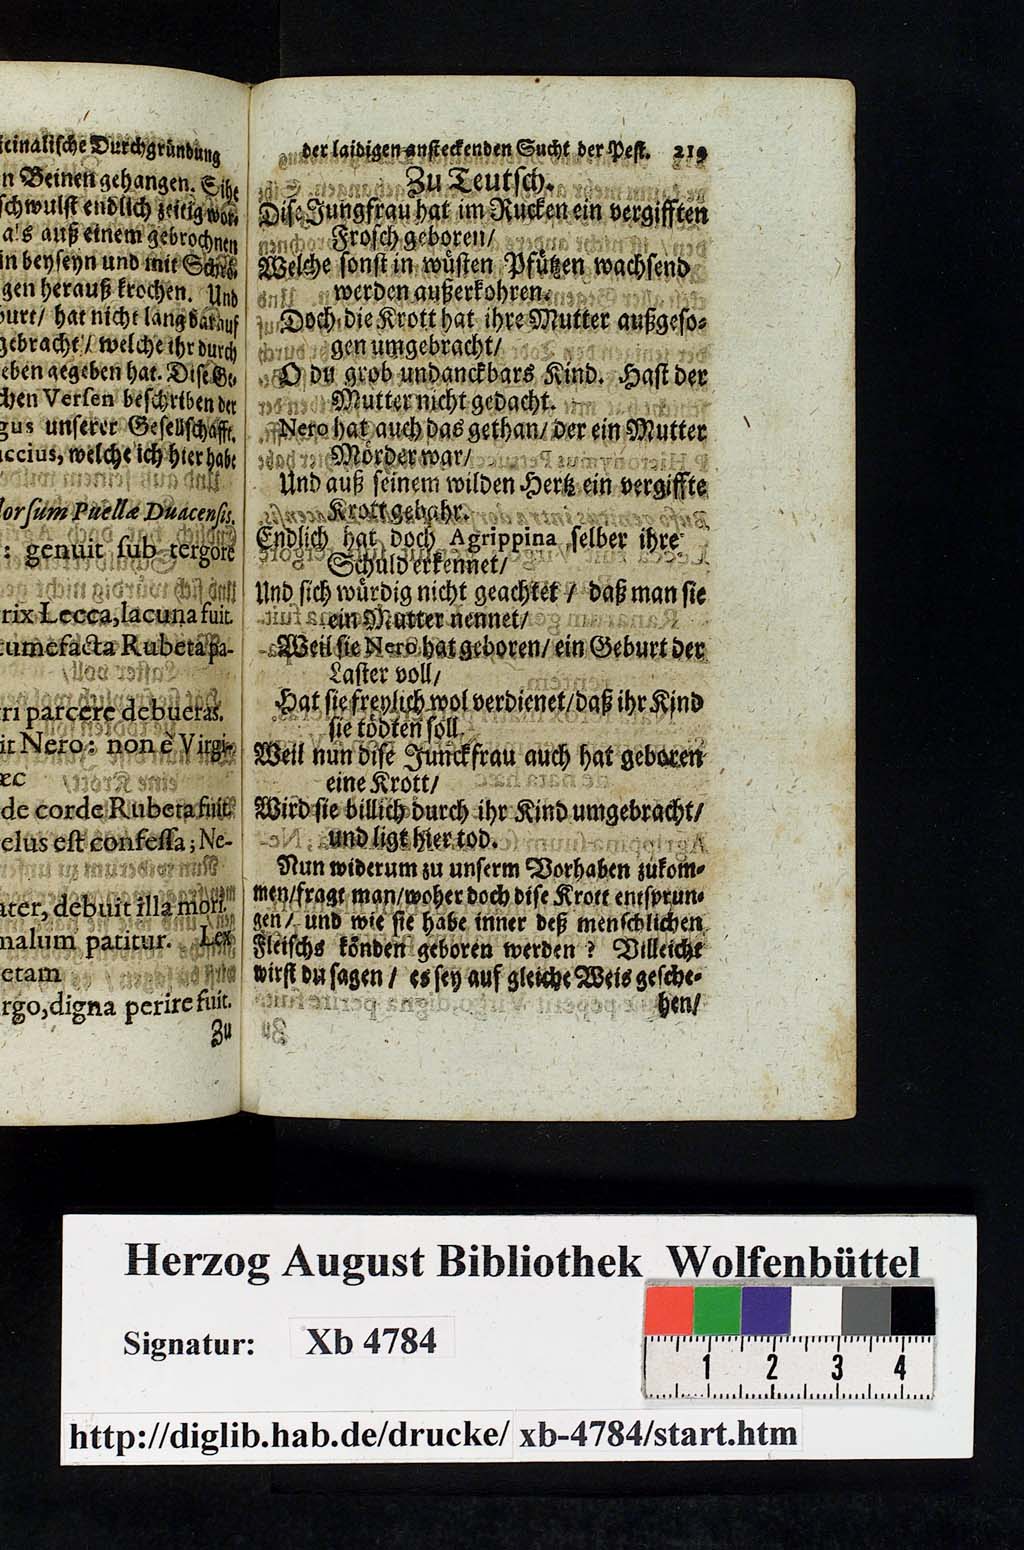 icinalische Durchgründung
n Beinen gehangen. Sihe
schwulst endlich zeitig
als auß einem gebrochnen
in beyseyn und mit
gen herauß krochen. Und
burt/ hat nicht lang darauf
gebracht/ welche ihr durch
eben gegeben hat. Dise Ge-
chen Versen beschriben der
gus unserer Gesellschafft,
uccius, welche ich hier habe
dorsum Puellæ Duacensis.
: genuit sub tergore
rix Lecca, lacuna fuit.
tumefacta Rubeta pa-
tri parcere debueras.
it Nero: non è Virgi-
æc
de corde Rubeta fuit.
elus est confessa; Ne-
ater, debuit illa mori.
malum patitur. Lex
etam
rgo, digna perire fuit.
Zu
der laidigen ansteckenden Sucht der Pest. 219
Zu Teutsch.
Dise Jungfrau hat im Rucken ein vergifften
Frosch geboren/
Welche sonst in wüsten Pfützen wachsend
werden außerkohren.
Doch die Krott hat ihre Mutter außgeso-
gen umgebracht/
O du grob undanckbars Kind. Hast der
Mutter nicht gedacht.
Nero hat auch das gethan/ der ein Mutter
Mörder war/
Und auß seinem wilden Hertz ein vergiffte
Krott gebahr.
Endlich hat doch Agrippina selber ihre
Schuld erkennet/
Und sich würdig nicht geachtet / daß man sie
ein Mutter nennet/
Weil sie Nero hat geboren/ ein Geburt der
Laster voll/
Hat sie freylich wol verdienet/ daß ihr Kind
sie tödten soll.
Weil nun dise Junckfrau auch hat geboren
eine Krott/
Wird sie billich durch ihr Kind umgebracht/
und ligt hier tod.
Nun widerum zu unserm Vorhaben zukom-
men/ fragt man/ woher doch dise Krott entsprun-
gen/ und wie sie habe inner deß menschlichen
Fleischs könden geboren werden ? Villeicht
wirst du sagen / es sey auf gleiche Weis gesche-
hen/
Herzog August Bibliothek Wolfenbüttel
Signatur: Xb 4784
1 2 3 4
http://diglib.hab.de/drucke/ xb-4784/start.htm